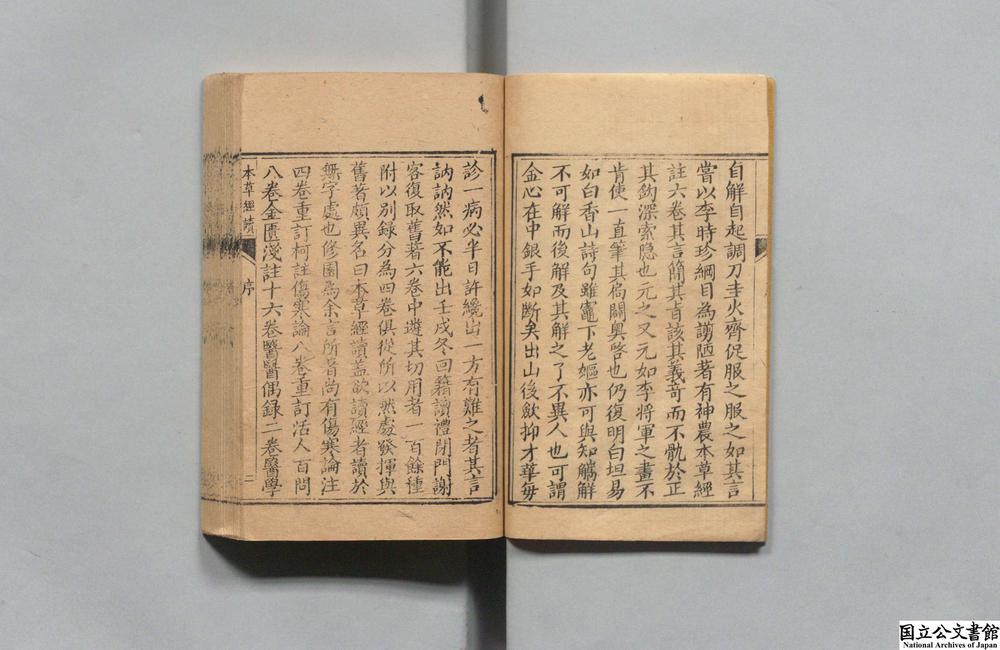 自解自起調刀圭火齊促服之服之如其言
嘗以李時珍綱目為謭陋著有神農本草經
註六卷其言簡其旨該其義奇而不骫於正
其鈎深索隐也元之又元如李將軍之畫不
肯使一直筆其扄闢奥啓也仍復明白坦易
如白香山詩句雖竈下老嫗亦可與知觿解
不可解而後解及其解之了不異人也可謂
金心在中銀手如斷矣出山後歛抑才華毎
診一病必半日許纔出一方有難之者其言
訥訥然如不能出壬戌冬回籍讀禮閉門謝
客復取舊著六卷中遴其切用者一百餘種
附以別録分為四卷俱從所以然處發揮與
舊著頗異名曰本草經讀葢欲讀經者讀於
無字處也修園為余言所著尚有傷寒論注
四卷重訂柯註傷寒論八卷重訂活人百問
八卷金匱淺註十六卷醫醫偶録二卷醫學
本草經讀
序
二
国立公文書館
National Archives of Japan